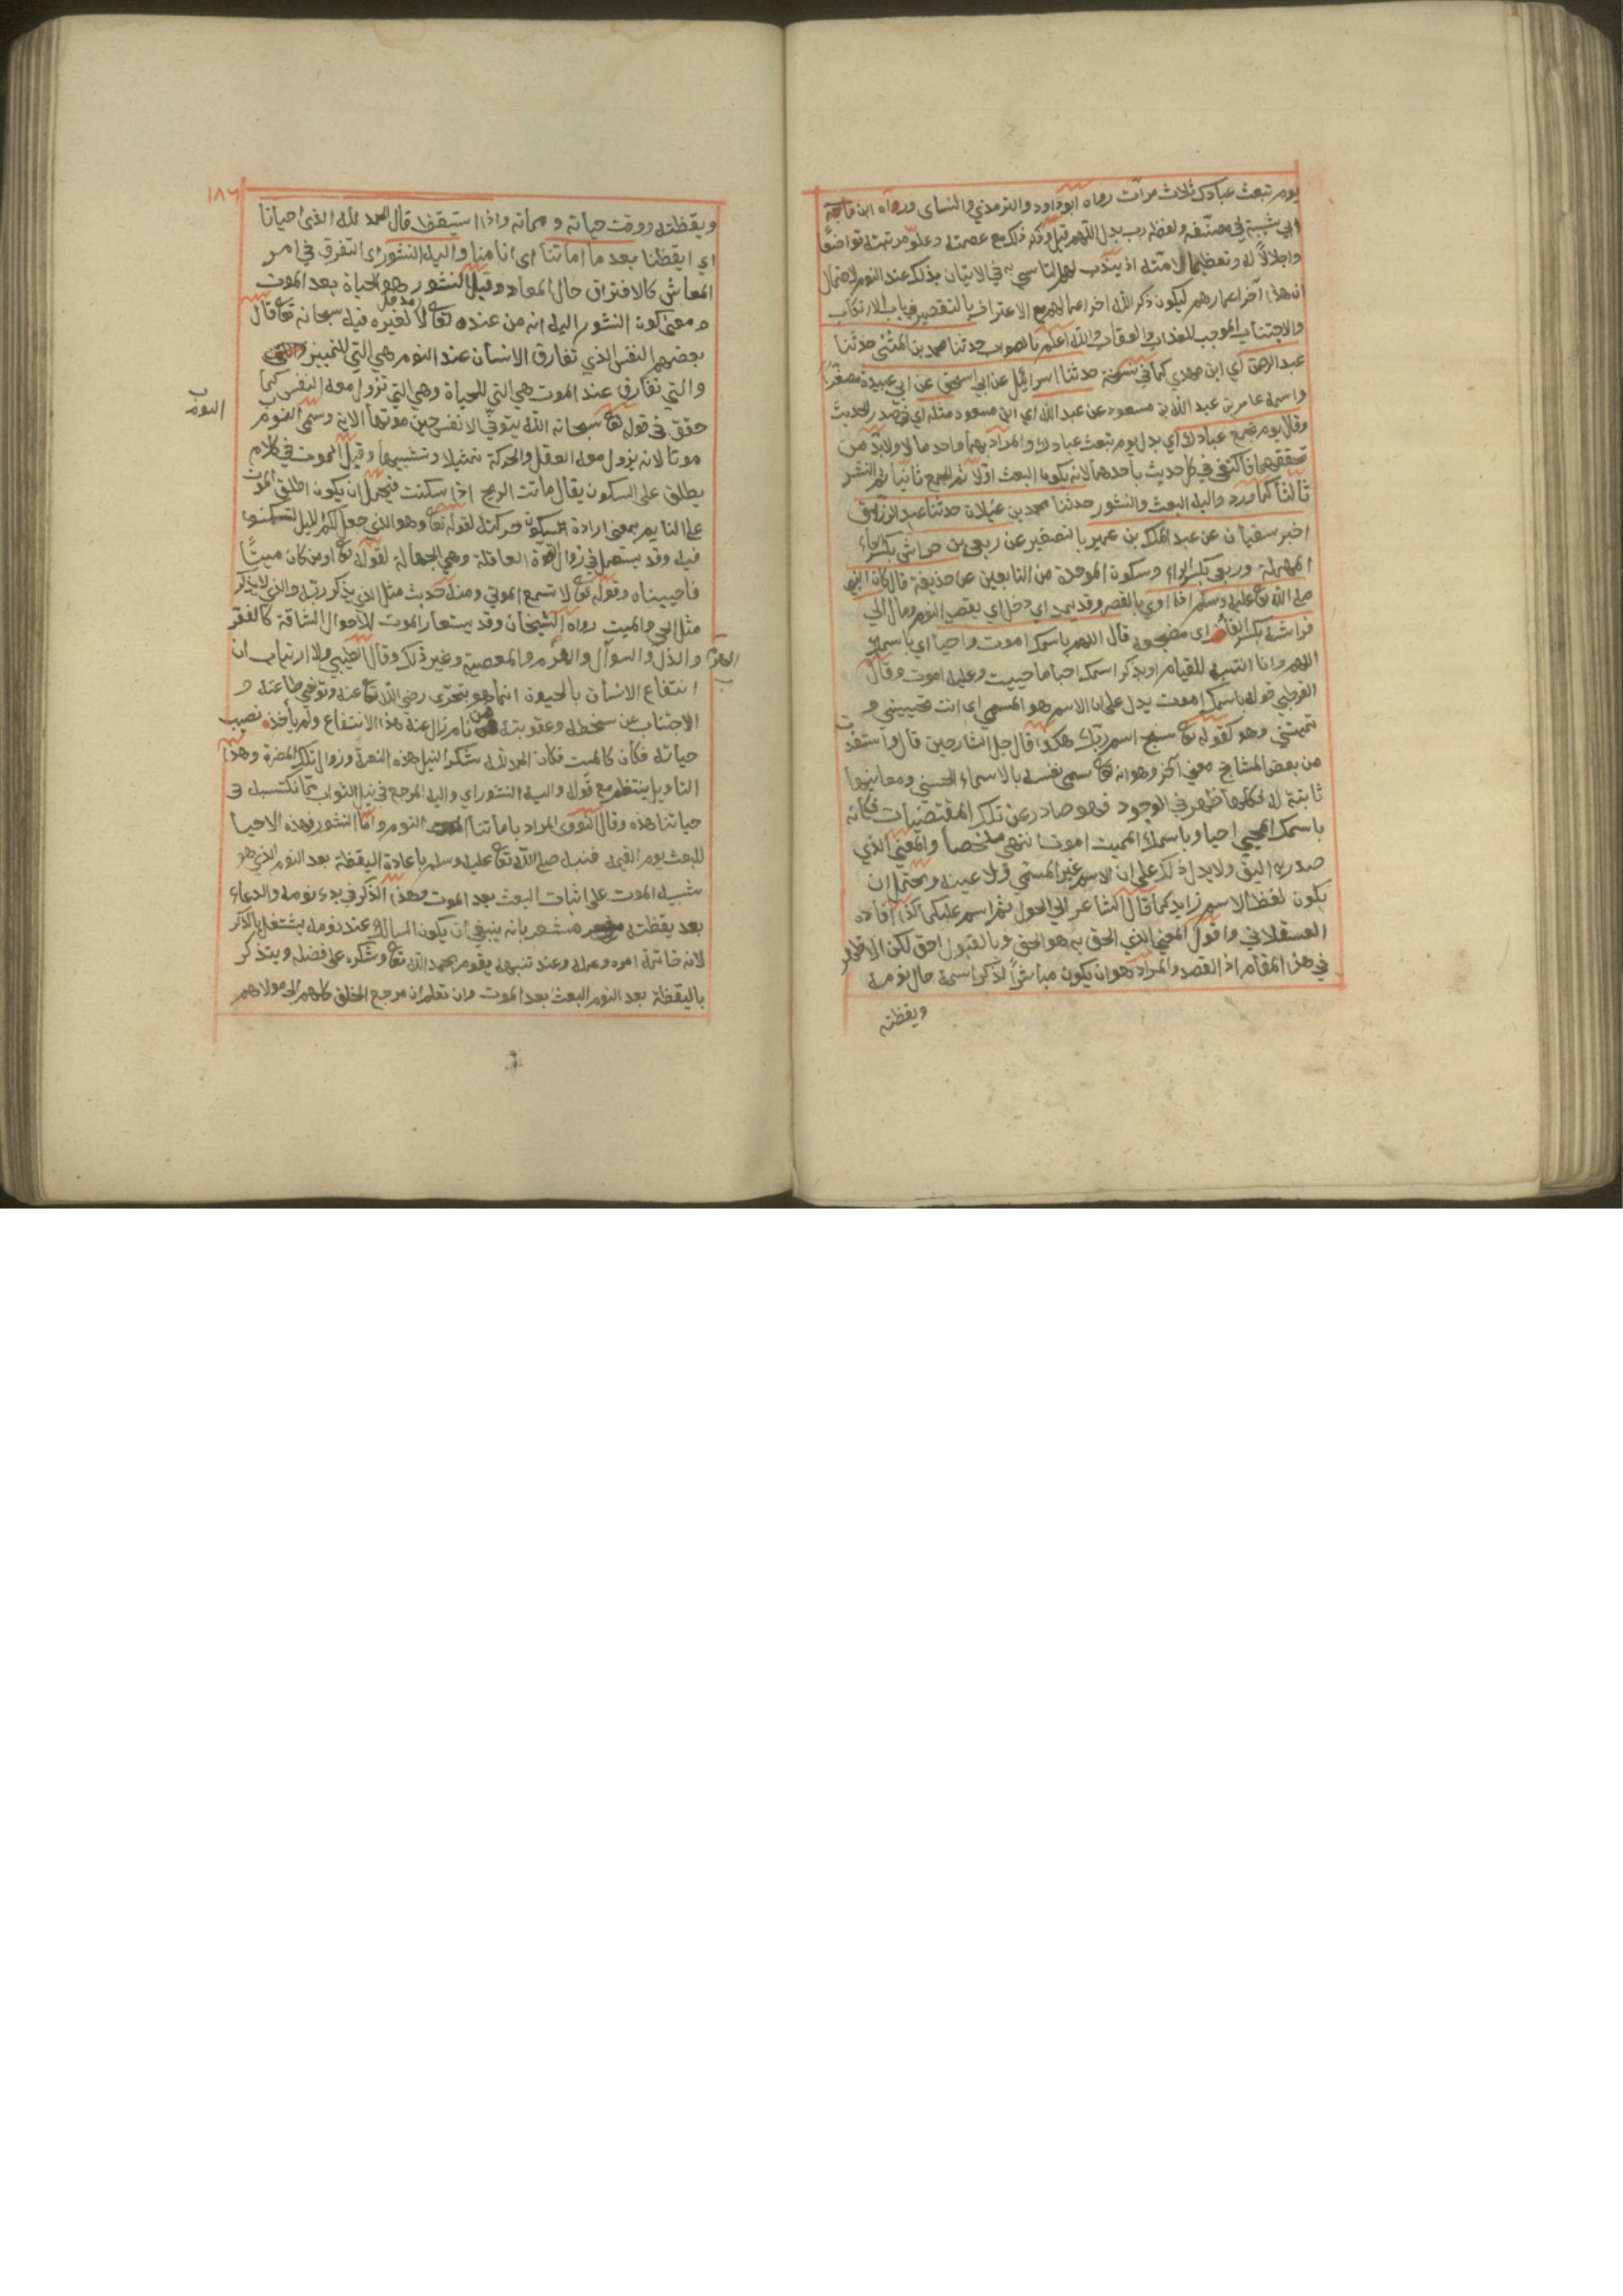 يوم تبعث عبادك ثلاث مرات رواه ابو داود والترمذي والنساى ورواه ابن ماجة
ابي شيبة في مصنفه ولفظه رب بدل اللهم قيل وذكر ذلك مع عصمته وعلو مرتبته تواضعًا
واجلالًا له وتعظيما لامته اذ يندب لهم التاسي به في الاتيان بذلك عند النوم لاحتمال
ان هذا آخر اعمارهم ليكون ذكر الله اخر اعمالهم مع الاعتراف بالتقصير في باب الارتكاب
والاجتناب الموجب للعذاب والعقاب والله اعلم بالصواب حدثنا محمد بن المثنى حدثنا
عبد الرحمن اي ابن مهدي كما في نسخة حدثنا اسرائيل عن ابي اسحق عن ابي عبيدة مصغرًا
واسمه عامر بن عبد الله بن مسعود عن عبد الله اي ابن مسعود مثله اي في صدر الحديث
وقال يوم تجمع عبادك اي بدل يوم تبعث عبادك والمراد بهما واحد مالا ولابد من
تحققهما فاكتفى في كل حديث باحدهما لانه يكون البعث اولا ثم الجمع ثانيا ثم النشر
ثالثا كما ورد واليه البعث والنشور حدثنا محمد بن غيلان حدثنا عبد الرزاق
اخبر سفيان عن عبد الملك بن عمير بالتصغير عن ربعي بن حراش بكسر الحاء
المهملة وربعي بكسر الراء وسكون الموحدة من التابعين عن حذيفة قال كان النبي
صلى الله تع عليه وسلم اذا اوي بالقصر وقد يمد اي دخل اي بقصد النوم ومال الي
فراشه بكسر الفاء اي مضجعه قال اللهم باسمك اموت واحيا اي باسمك
اللهم وانا انتبه للقيام او بذكر اسمك احيا ما حييت وعليه اموت وقال
القرطبي قوله باسمك اموت يدل على ان الاسم هو المسمي اى انت تحييني و
تميتني وهو كقوله تع سبح اسم ربك هكذا قال جل الشارحين قال واستفدت
من بعض المشايخ معنى آخر وهو انه تع سمى نفسه بالاسماء الحسنى ومعانيها
ثابتة له فكلما ظهر في الوجود فهو صادر عن تلك المقتضيات فكانه
باسمك المحيي احيا وباسمك المميت اموت انتهى ملخصا والمعنى الذي
صدر به اليق ولا يدل ذلك على ان الاسم غير المسمى ولا عينه ويحتمل ان
يكون لفظ الاسم زايد كما قال الشاعر الى الحول ثم اسم عليكما كذا افاده
العسقلاني واقول المعنى الذي الحق به هو الحق وبالقبول احق لكن الاظهر
في هذا المقام اذ القصد والمراد هو ان يكون مباشرًا لذكر اسمه حال نومه
ويقظته
١٨٦
ويقظته ووقت حياته ومماته واذا استيقظ قال الحمد لله الذى احيانا
اي ايقظنا بعد ما اماتنا اى انامنا واليه النشور اى التفرق في امر
المعاش كالافتراق حال المعاد وقيل النشور هو الحياة بعد الموت
ومعنى كون النشور اليه انه من عنده تع لا مدخل لغيره فيه سبحانه تع قال
بعضهم النفس الذي تفارق الانسان عند النوم هي التي للتمييز
والتي تفارق عند الموت هي التي للحياة وهي التي تزول معه النفس كما
حقق في قوله تع سبحانه الله يتوفي الانفس حين موتها الاية وسمى النوم
النوم
موتا لانه يزول معه العقل والحركة تمثيلا وتشبيها وقيل الموت في كلام
يطلق على السكون يقال ماتت الريح اذا سكنت فيحمل ان يكون اطلق الموت
على النايم بمعنى ارادة سكون حركته لقوله تع وهو الذي جعل لكم الليل لتسكنوا
فيه وقد يستعمل في زوال القوة العاقلة وهي الجهالة لقوله تع اومن كان ميتًا
فاحييناه وقوله تع لا تسمع الموتي ومنه حديث مثل الذي يذكر ربه والذي لا يذكر
مثل الحي والميت رواه الشيخان وقد يستعار الموت للاحوال الشاقة كالفقر
والذل والسوآل والهرم والمعصية وغير ذلك وقال الطيبي ولا ارتياب ان
الهرم
انتفاع الانسان بالحيوة انما هو بتحري رضى الله تع عنه وتوخي طاعته و
الاجتناب عن سخطه وعقوبته فمن نام زال عنه هذا الانتفاع ولم ياخذه نصيب
حياته فكان كالميت فكان الحمد لله شكرا لنيل هذه النعمة وزوال تلك المضرة وهذا
التاويل ينتظم مع قوله واليه النشور اي واليه المرجع في نيل الثواب بما نكتسبه فى
حياتنا هذه وقال النووى المراد باماتنا النوم واما النشور فهذه الاحيا
للبعث يوم القيمة فنبه صلى الله تع عليه وسلم باعادة اليقظة بعد النوم الذي هو
شبيه الموت على اثبات البعث بعد الموت وهذا الذكر في بدء نومه والدعاء
بعد يقظته مشعر بانه ينبغي ان يكون السالك عند نومه يشتغل بالذكر
لانه خاتمة امره وعمله وعند تنبهه يقوم بحمد الله تع وشكره على فضله ويتذكر
باليقظة بعد النوم البعث بعد الموت وان تعلم ان مرجع الخلق كلهم الى مولاهم